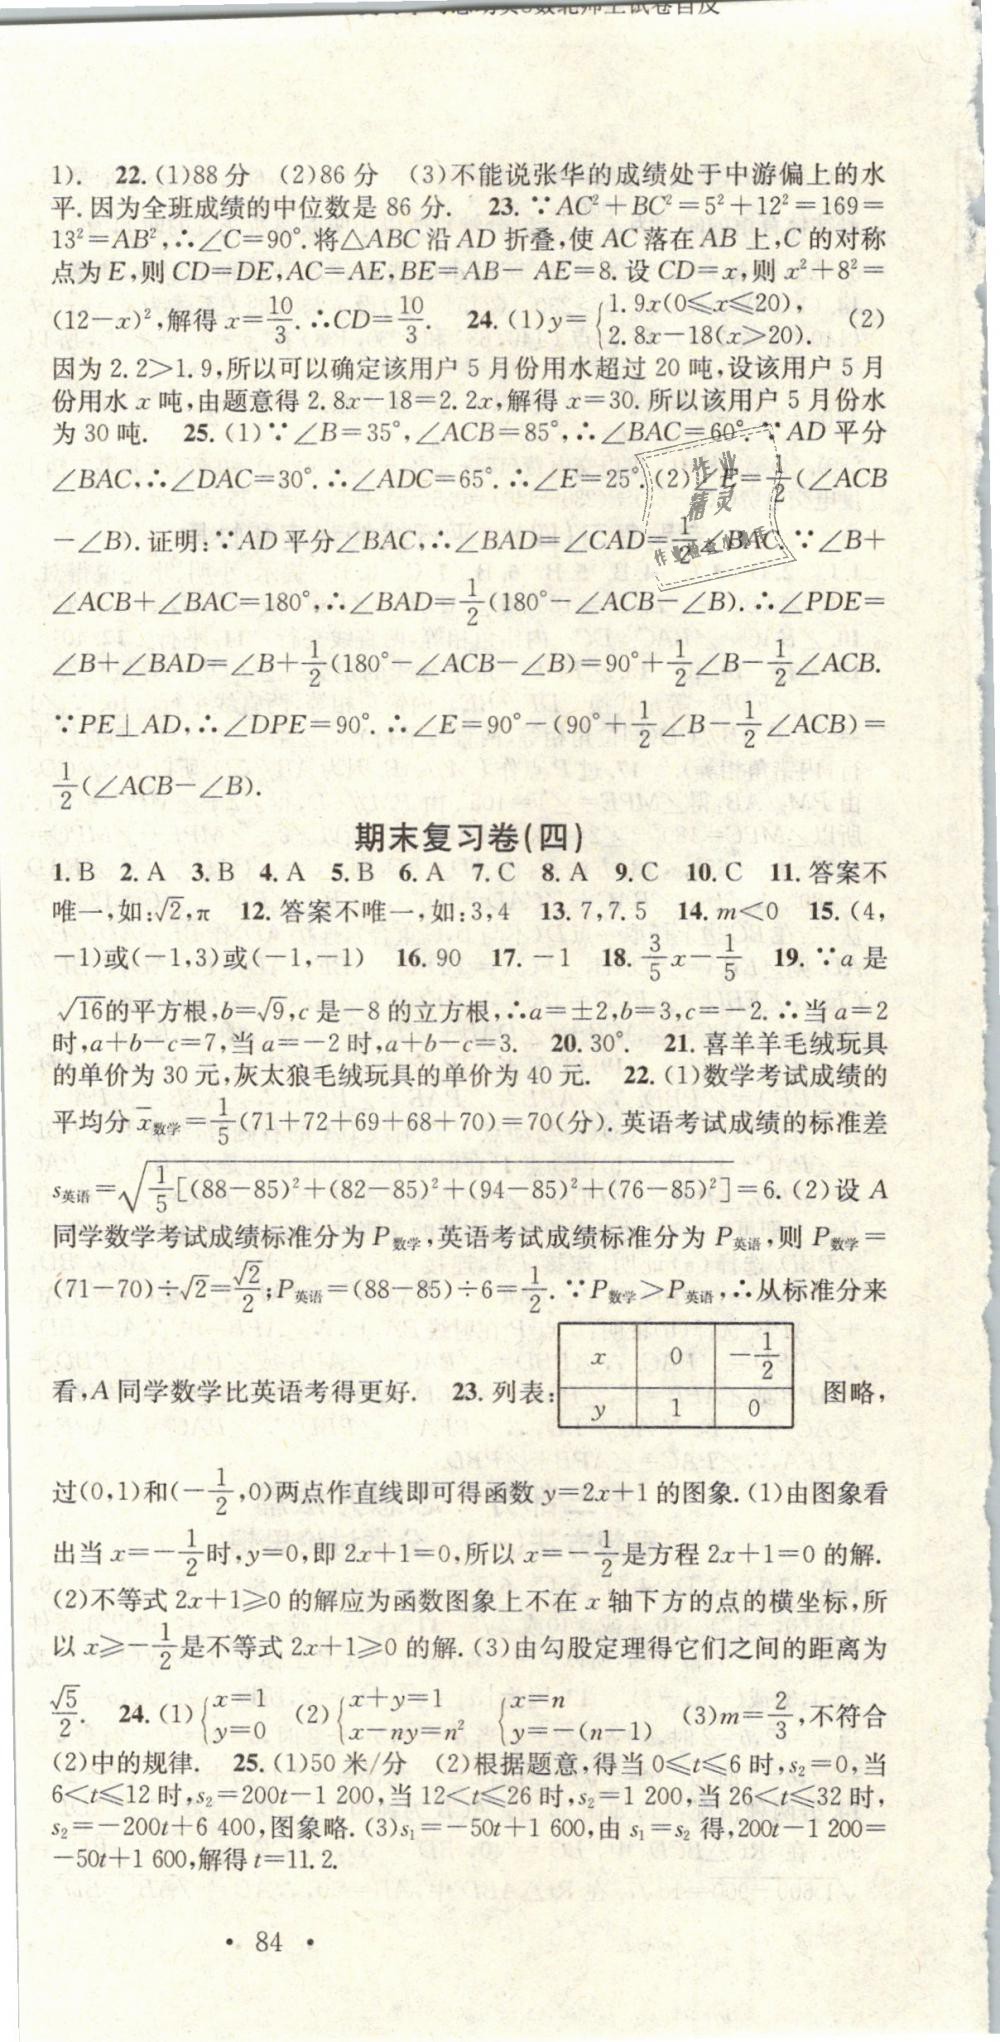 1). 22. (1)88 分 (2)86 分 (3)不能说张华的成绩处于中游偏上的水
平. 因为全班成绩的中位数是 86 分. 23. ∵AC²+BC²=5²+12²=169=
13²=AB²,∴∠C=90°. 将△ABC 沿 AD 折叠,使 AC 落在 AB 上,C 的对称
点为 E,则 CD=DE,AC=AE,BE=AB- AE=8. 设 CD=x,则 x²+8²=
(12-x)²,解得 x=10/3. ∴CD=10/3. 24. (1)y={1.9x(0≤x≤20), 2.8x-18(x>20). (2)
因为 2.2>1.9,所以可以确定该用户 5 月份用水超过 20 吨,设该用户 5 月
份用水 x 吨,由题意得 2.8x-18=2.2x,解得 x=30. 所以该用户 5 月份水
为 30 吨. 25. (1)∵∠B=35°,∠ACB=85°,∴∠BAC=60°. ∵AD 平分
∠BAC,∴∠DAC=30°. ∴∠ADC=65°. ∴∠E=25°. (2)∠E=1/2(∠ACB
-∠B). 证明:∵AD 平分∠BAC,∴∠BAD=∠CAD=1/2∠BAC. ∵∠B+
∠ACB+∠BAC=180°,∴∠BAD=1/2(180°-∠ACB-∠B). ∴∠PDE=
∠B+∠BAD=∠B+1/2(180°-∠ACB-∠B)=90°+1/2∠B-1/2∠ACB.
∵PE⊥AD,∴∠DPE=90°. ∴∠E=90°-(90°+1/2∠B-1/2∠ACB)=
1/2(∠ACB-∠B).
期末复习卷(四)
1. B 2. A 3. B 4. A 5. B 6. A 7. C 8. A 9. C 10. C 11. 答案不
唯一,如:√2,π 12. 答案不唯一,如:3,4 13. 7,7.5 14. m<0 15. (4,
-1)或(-1,3)或(-1,-1) 16. 90 17. -1 18. 3/5x-1/5 19. ∵a 是
√16的平方根,b=√9,c 是-8 的立方根,∴a=±2,b=3,c=-2. ∴当 a=2
时,a+b-c=7,当 a=-2 时,a+b-c=3. 20. 30°. 21. 喜羊羊毛绒玩具
的单价为 30 元,灰太狼毛绒玩具的单价为 40 元. 22. (1)数学考试成绩的
平均分 x̄数学=1/5(71+72+69+68+70)=70(分). 英语考试成绩的标准差
s英语=√(1/5[(88-85)²+(82-85)²+(94-85)²+(76-85)²])=6. (2)设 A
同学数学考试成绩标准分为 P数学,英语考试成绩标准分为 P英语,则 P数学=
(71-70)÷√2=√2/2;P英语=(88-85)÷6=1/2. ∵P数学>P英语,∴从标准分来
看,A 同学数学比英语考得更好. 23. 列表: 图略,
x 0 -1/2
y 1 0
过(0,1)和(-1/2,0)两点作直线即可得函数 y=2x+1 的图象. (1)由图象看
出当 x=-1/2时,y=0,即 2x+1=0,所以 x=-1/2是方程 2x+1=0 的解.
(2)不等式 2x+1≥0 的解应为函数图象上不在 x 轴下方的点的横坐标,所
以 x≥-1/2是不等式 2x+1≥0 的解. (3)由勾股定理得它们之间的距离为
√5/2. 24. (1){x=1 y=0 (2){x+y=1 x-ny=n² {x=n y=-(n-1) (3)m=2/3,不符合
(2)中的规律. 25. (1)50 米/分 (2)根据题意,得当 0≤t≤6 时,s₂=0,当
6<t≤12 时,s₂=200t-1 200,当 12<t≤26 时,s₂=1 200,当 26<t≤32 时,
s₂=-200t+6 400,图象略. (3)s₁=-50t+1 600,由 s₁=s₂ 得,200t-1 200=
-50t+1 600,解得 t=11.2.
• 84 •
作业
精灵